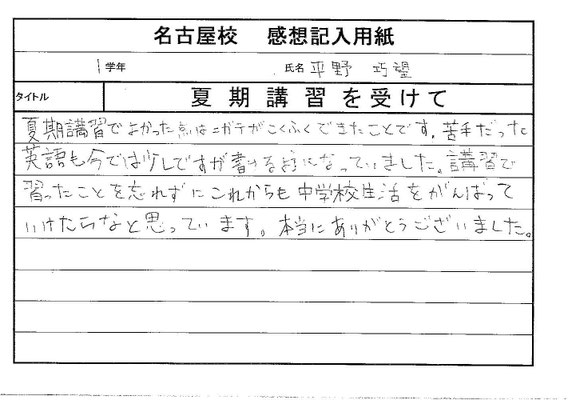 名古屋校 感想記入用紙
1学年 氏名 平野 巧望
タイトル 夏期講習を受けて
夏期講習でよかった点はニガテがこくふくできたことです。苦手だった
英語も今では少しですが書けるようになっていました。講習で
習ったことを忘れずにこれからも中学校生活をがんばって
いけたらなと思っています。本当にありがとうございました。